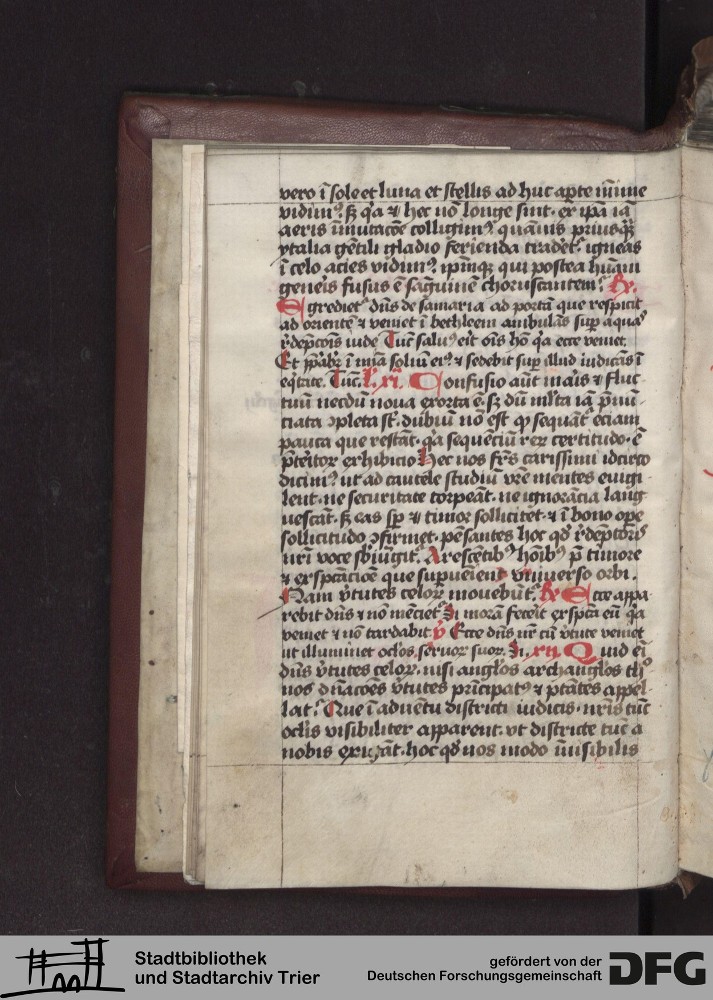 vero ī sole et luna et stellis ad huc aperte mīme
vidimꝰ. sꝫ qͥa ⁊ hec nō longe sint. ex ipā iā
aeris īmutacōe colligimꝰ. quāuis priusqꝫ
ytalia gētili gladio ferienda tradetͬ. igneas
ī celo acies vidimꝰ. ipmqꝫ qui postea humani
gene͛is fusus ē sāguinē choruscantem. Rx.
Egredietͬ dn̄s de samaria ad portā que respicit
ad orientē ⁊ veniet ī bethleem ambulās suꝑ aquas
r̄dēpcōis iude Tūc saluꝰ e͛it oīs hō qͥa ecce veniet.
Et p̄pabitͬ ī mīa solium eiꝰ ⁊ sedebit suꝑ illud iudicās ī
eqͥtate. Tūc. l. xi. Confusio aūt maris ⁊ fluc
tuū necdū noua exorta ē. sꝫ dū ml̄ta iā p̄nū
ciata ꝯpleta st̄. dubiū nō est qͦ sequāt͛ eciam
pauca que restāt. qͥa sequēciū reꝝ certitudo. ē
p̄teritoꝝ exhibicio Hec nos fr̄s carissimi idcirco
dicimꝰ ut ad cautele studiū vr̄e mentes euigi
lent. ne securitate torpeāt. ne ignorācia lang
uescāt. sꝫ eas sꝑ ⁊ timor sollicitet. ⁊ ī bono oꝑe
sollicitudo ꝯfirmet. pēsantes hoc qd̄ r̄dēptoris
nr̄i voce sbiungitͬ. Arescētibꝰ hoībꝰ p̄ timore
⁊ exspctācōe que supuēient vniuerso orbi.
Nam v̄tutes celoꝝ mouebūtͬ. Rx Ecce appa
rebit dn̄s ⁊ nō mēcietͬ Si morā fece͛it exspcta eū qͥa
veniet ⁊ nō tardabit. v̄ Ecce dn̄s nr̄ cū v̄tute veniet
ut illuminet oclos seruoꝝ suoꝝ. Si. xii. Quid ei
dn̄s v̄tutes celoꝝ. nisi anglos archanglos th
nos dn̄acōes v̄tutes prīcipatꝰ ⁊ ptātes appel
lat. Que ī aduētu districti iudicis. nr̄is tūc
oclis visibiliter apparent. vt districte tūc a
nobis exigāt. hoc qd̄ nos modo īuisibilis
Stadtbibliothek
und Stadtarchiv Trier
gefördert von der
Deutschen Forschungsgemeinschaft
DFG